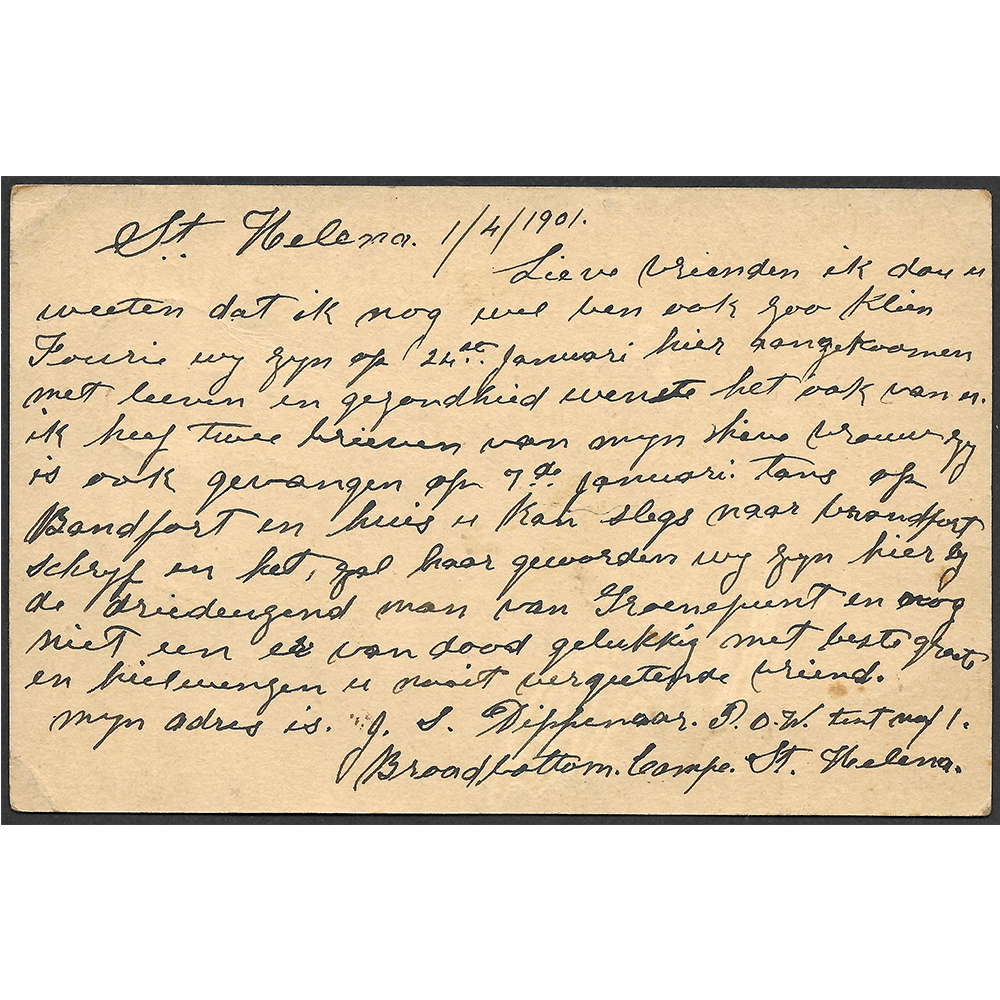 St. Helena. 1/4/1901.
Lieve vrienden ik doe u
weeten dat ik nog wel ben ook zoo klien
Fourie wy zyn op 24ste Januari hier aangekoomen
met leeven en gezondhied wenste het ook van u.
ik heef twee brieven van myn lieve vrouw zy
is ook gevangen op 7de Januari. tans op
Bandfort en huis u kan slegs naar brandfort
schryf en het, zal haar geworden wy zyn hier by
de driedeuzend man van Groenepunt en nog
niet een er van dood gelukkig met beste groete
en hielwengen u nooit vergeetende vriend.
myn adres is. J. S. Dippenaar. P.O.W. tent no/1.
Broadbottom. Campe. St. Helena.